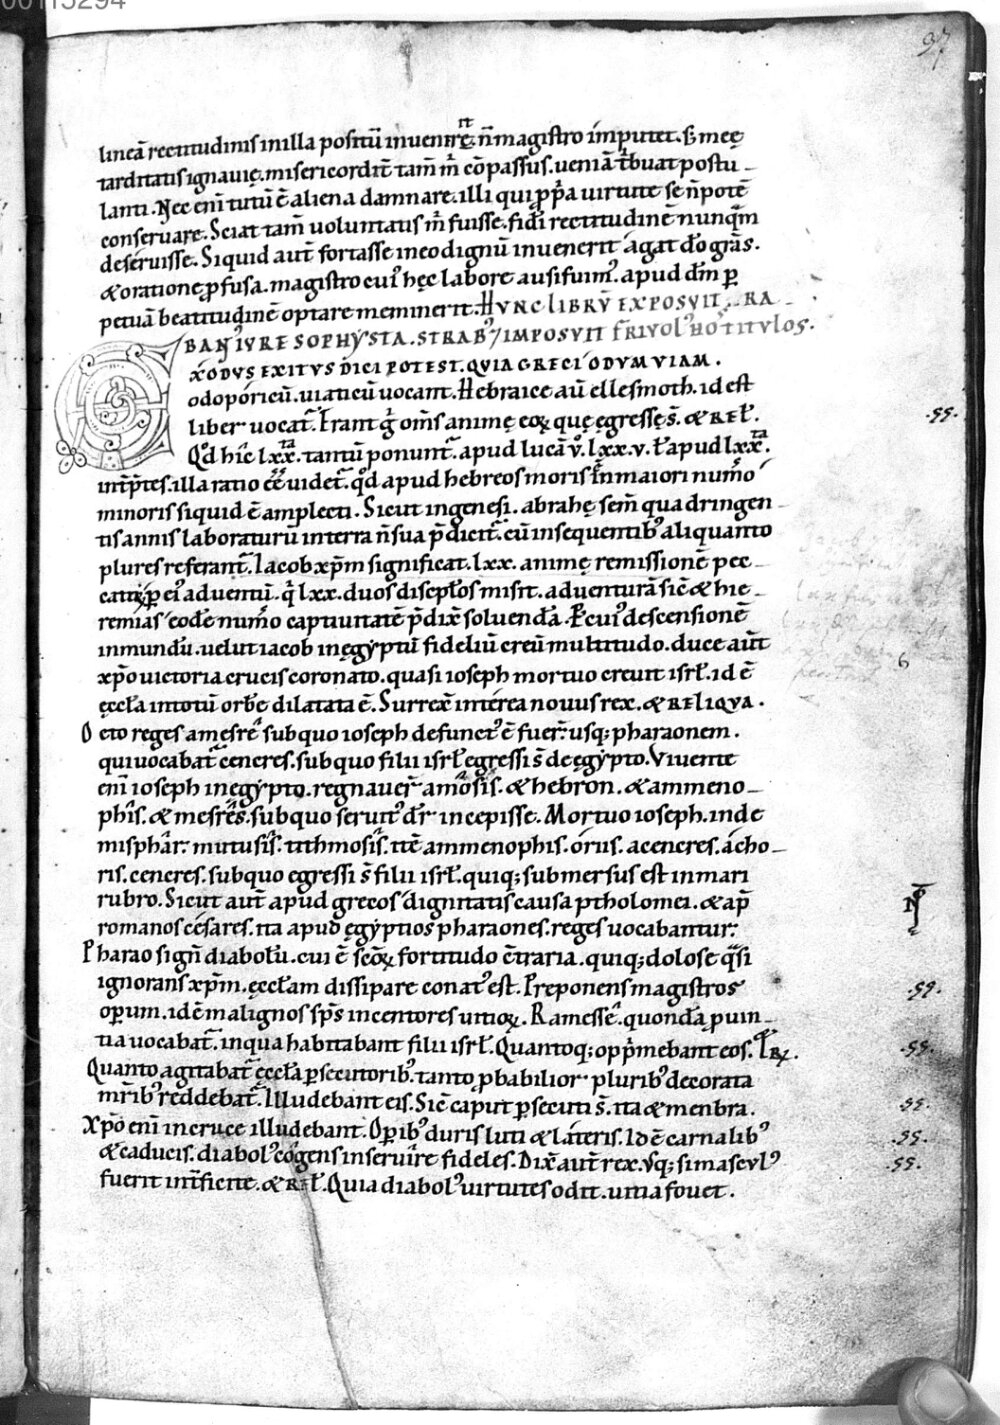 00115294
97
lineā rectitudinis in illa positū inuenire n̄ magistro imputet. s; meę
tarditatis ignauię. misericordit̄ tam̄ m̄ cōpassus. ueniā t̄buat postu-
lanti. Nec eni tutū ē aliena damnare. illi qui ꝓp̄a uirtute se n̄ potē
conseruare. Sciat tam̄ uoluntatis m̄ fuisse. fidi rectitudinē nunq̄m
deseruisse. Siquid aut̄ fortasse in eo dignū inuenerit agat dō grās.
& oratione ꝓfusa. magistro cui' hęc labore ausi fuim'. apud dm̄ ꝑ
petuā beatitudinē optare meminerit. HVNC LIBRV̄ EXPOSVIT RA-
BAN' IVRE SOPHYSTA. STRAB' 7 IMPOSVIT FRIVOL' HOS TITVLOS.
XODVS EXITVS DICI POTEST. QVIA GRECI ODVM VIAM.
odoporicū. uiaticū uocant. Hebraice aū ellesmoth. id est
liber uocat̄. Erant ḡ om̄s animę eoꝝ quę egressę s̄. & REL̄.
Qd̄ hic lxx. tantū ponunt̄. apud lucā ù. lxx.v. ł apud lxx.
int̄p̄tes. illa ratio eē uidet̄. qd̄ apud hebreos moris ē in maiori num̄o
minoris siquid ē amplecti. Sicut in genesi. abrahę sem̄ quadringen
tis annis laboraturū in terra n̄ sua p̄dicit̄. cū in sequentib' aliquanto
plures referant̄. Iacob xp̄m significat. lxx. animę remissionē pec-
catoꝝ ꝑ ei' aduentū. q̄ lxx. duos discip̄los misit. aduenturā sic̄ & hie-
remias eodē num̄o captiuitatē p̄dix̄ soluendā. P cui' descensionē
in mundū. uelut iacob in ęgyptū fideliū creuit multitudo. duce aut̄
xp̄o uictoria crucis coronato. quasi ioseph mortuo creuit isrl̄. id ē
ęccl̄a in totū orbē dilatata ē. Surrex̄ interea nouus rex. & RELIQVA.
Octo reges amesre sub quo ioseph defunct' ē fuer̄. usq; pharaonem.
qui uocabat̄ ceneres. sub quo filii isrl̄ egressi s̄ de ęgypto. Viuente
eni ioseph in ęgypto. regnauer̄ amosis. & hebron. & ammeno-
phis. & mesres. sub quo seruit' dr̄ incepisse. Mortuo ioseph. inde
misphar. mutusis. tithmosis. itē ammenophis. orus. aceneres. acho-
ris. ceneres. sub quo egressi s̄ filii isrl̄. quiq; submersus est in mari
rubro. Sicut aut̄ apud grecos dignitatis causa ptholomei. & ap̄
romanos cesares. ita apud ęgyptios pharaones. reges uocabantur.
Pharao sign̄ diabolū. cui ē scōꝝ fortitudo c̄traria. quiq; dolose q̄si
ignorans xp̄m. ęccl̄am dissipare conat' est. Preponens magistros
oꝑum. id ē malignos sp̄s incentores uitioꝝ. Ramesse. quondā ꝓuin-
tia uocabat̄. in qua habitabant filii isrl̄. Quantoq; opp̄mebant eos.
Quanto agitabat̄ ęccl̄a ꝑsecutorib'. tanto ꝓbabilior plurib' decorata
mr̄ib' reddebat̄. Illudebant eis. Sic̄ caput ꝑsecuti s̄. ita & menbra.
Xp̄o eni in cruce illudebant. Oꝑib' duris luti & lateris. Id ē carnalib'
& caducis. diabol' cogens inseruire fideles. Dix̄ aut̄ rex. Vsq; si mascul'
fuerit int̄ficite. & REL̄. Quia diabol' uirtutes odit. uitia fouet.